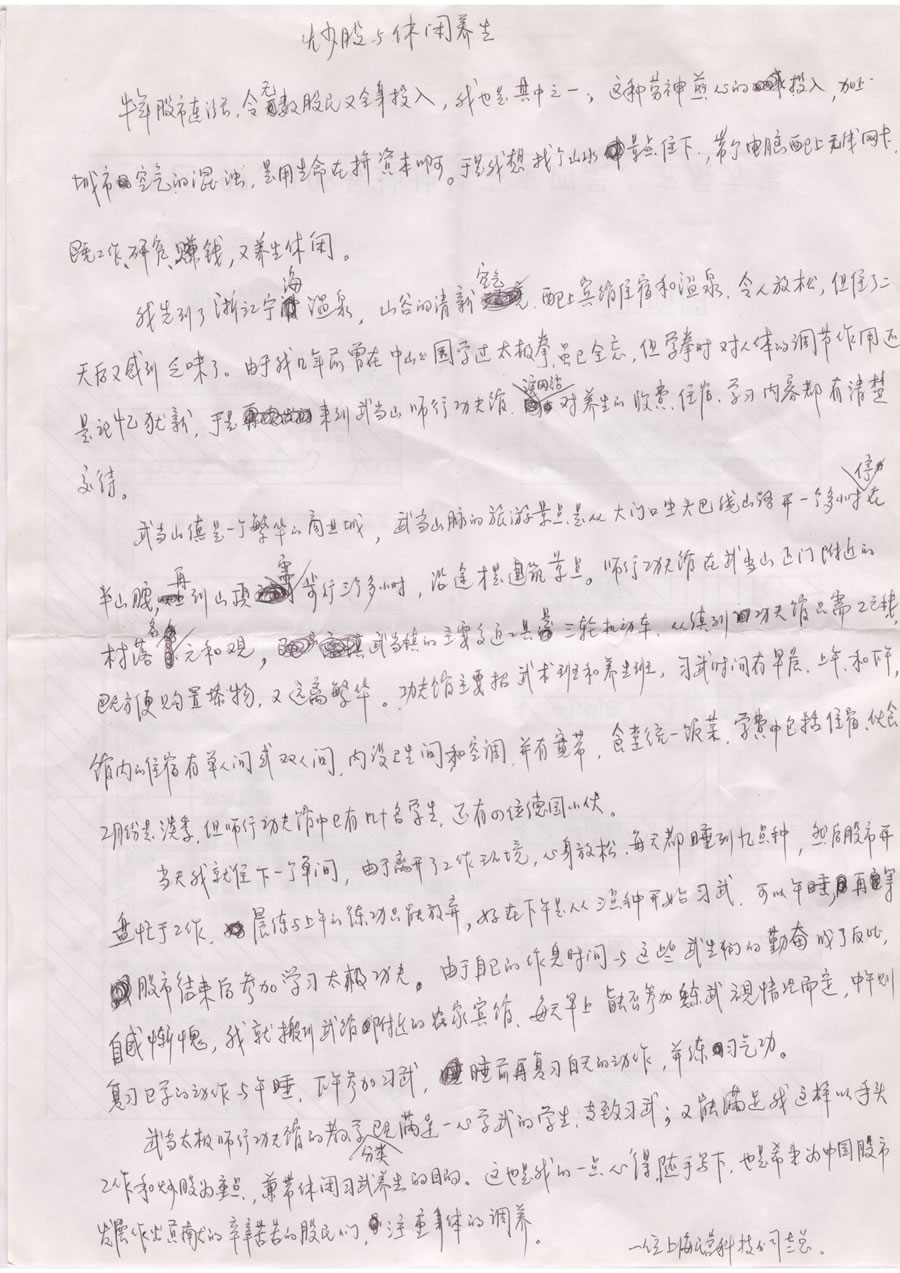 炒股与休闲养生
牛年股市连涨,令无数股民又全身投入,我也是其中之一,这种劳神煎心的投入,加上
城市空气的混浊,是用生命在拼资本啊。于是我想找个山水景点住下,带了电脑配上无线网卡
既工作、研究、赚钱,又养生休闲。
我先到了浙江宁海温泉,山谷的清新空气,配上宾馆住宿和温泉,令人放松,但住了二
天后又感到乏味了。由于我几年前曾在中山公园学过太极拳,虽已全忘,但学拳时对人体的调节作用还
是记忆犹新,于是来到武当山师行功夫馆,该网站对养生的收费、住宿、学习内容都有清楚
交待。
武当山镇是一个繁华的商业城,武当山脉的旅游景点是从大门口坐大巴绕山路开一个多小时停在
半山腰,再到山顶需步行三个多小时,沿途才是建筑景点。师行功夫馆在武当山正门附近的
村落名元和观,武当镇的主要交通工具是三轮机动车,从镇到功夫馆只需2元钱,
既方便购置杂物,又远离繁华。功夫馆主要招武术班和养生班,习武时间有早晨、上午、和下午,
馆内的住宿有单人间或双人间,内设卫生间和空调,并有宽带,食堂统一饭菜,学费中包括住宿、伙食
2月份是淡季,但师行功夫馆中已有几十名学生,还有四位德国小伙。
当天我就住下一个单间,由于离开了工作环境,心身放松,每天都睡到九点种,然后股市开
盘忙于工作,晨练与上午的练功只能放弃,好在下午是从3点种开始习武,可以午睡,再等
股市结束后参加学习太极功夫。由于自己的作息时间与这些武生们的勤奋成了反比,
自感惭愧,我就搬到武馆附近的农家宾馆,每天早上能否参加练武视情况而定,中午则
复习已学的动作与午睡,下午参加习武,睡前再复习白天的动作,并练习气功。
武当太极师行功夫馆的分类教学既满足一心学武的学生专致习武;又能满足我这样以手头
工作和炒股为重点,兼带休闲习武养生的目的。这也是我的一点心得随手写下,也是希望为中国股市
发展作出贡献的辛辛苦苦的股民们注重身体的调养。
一位上海民营科技公司老总。